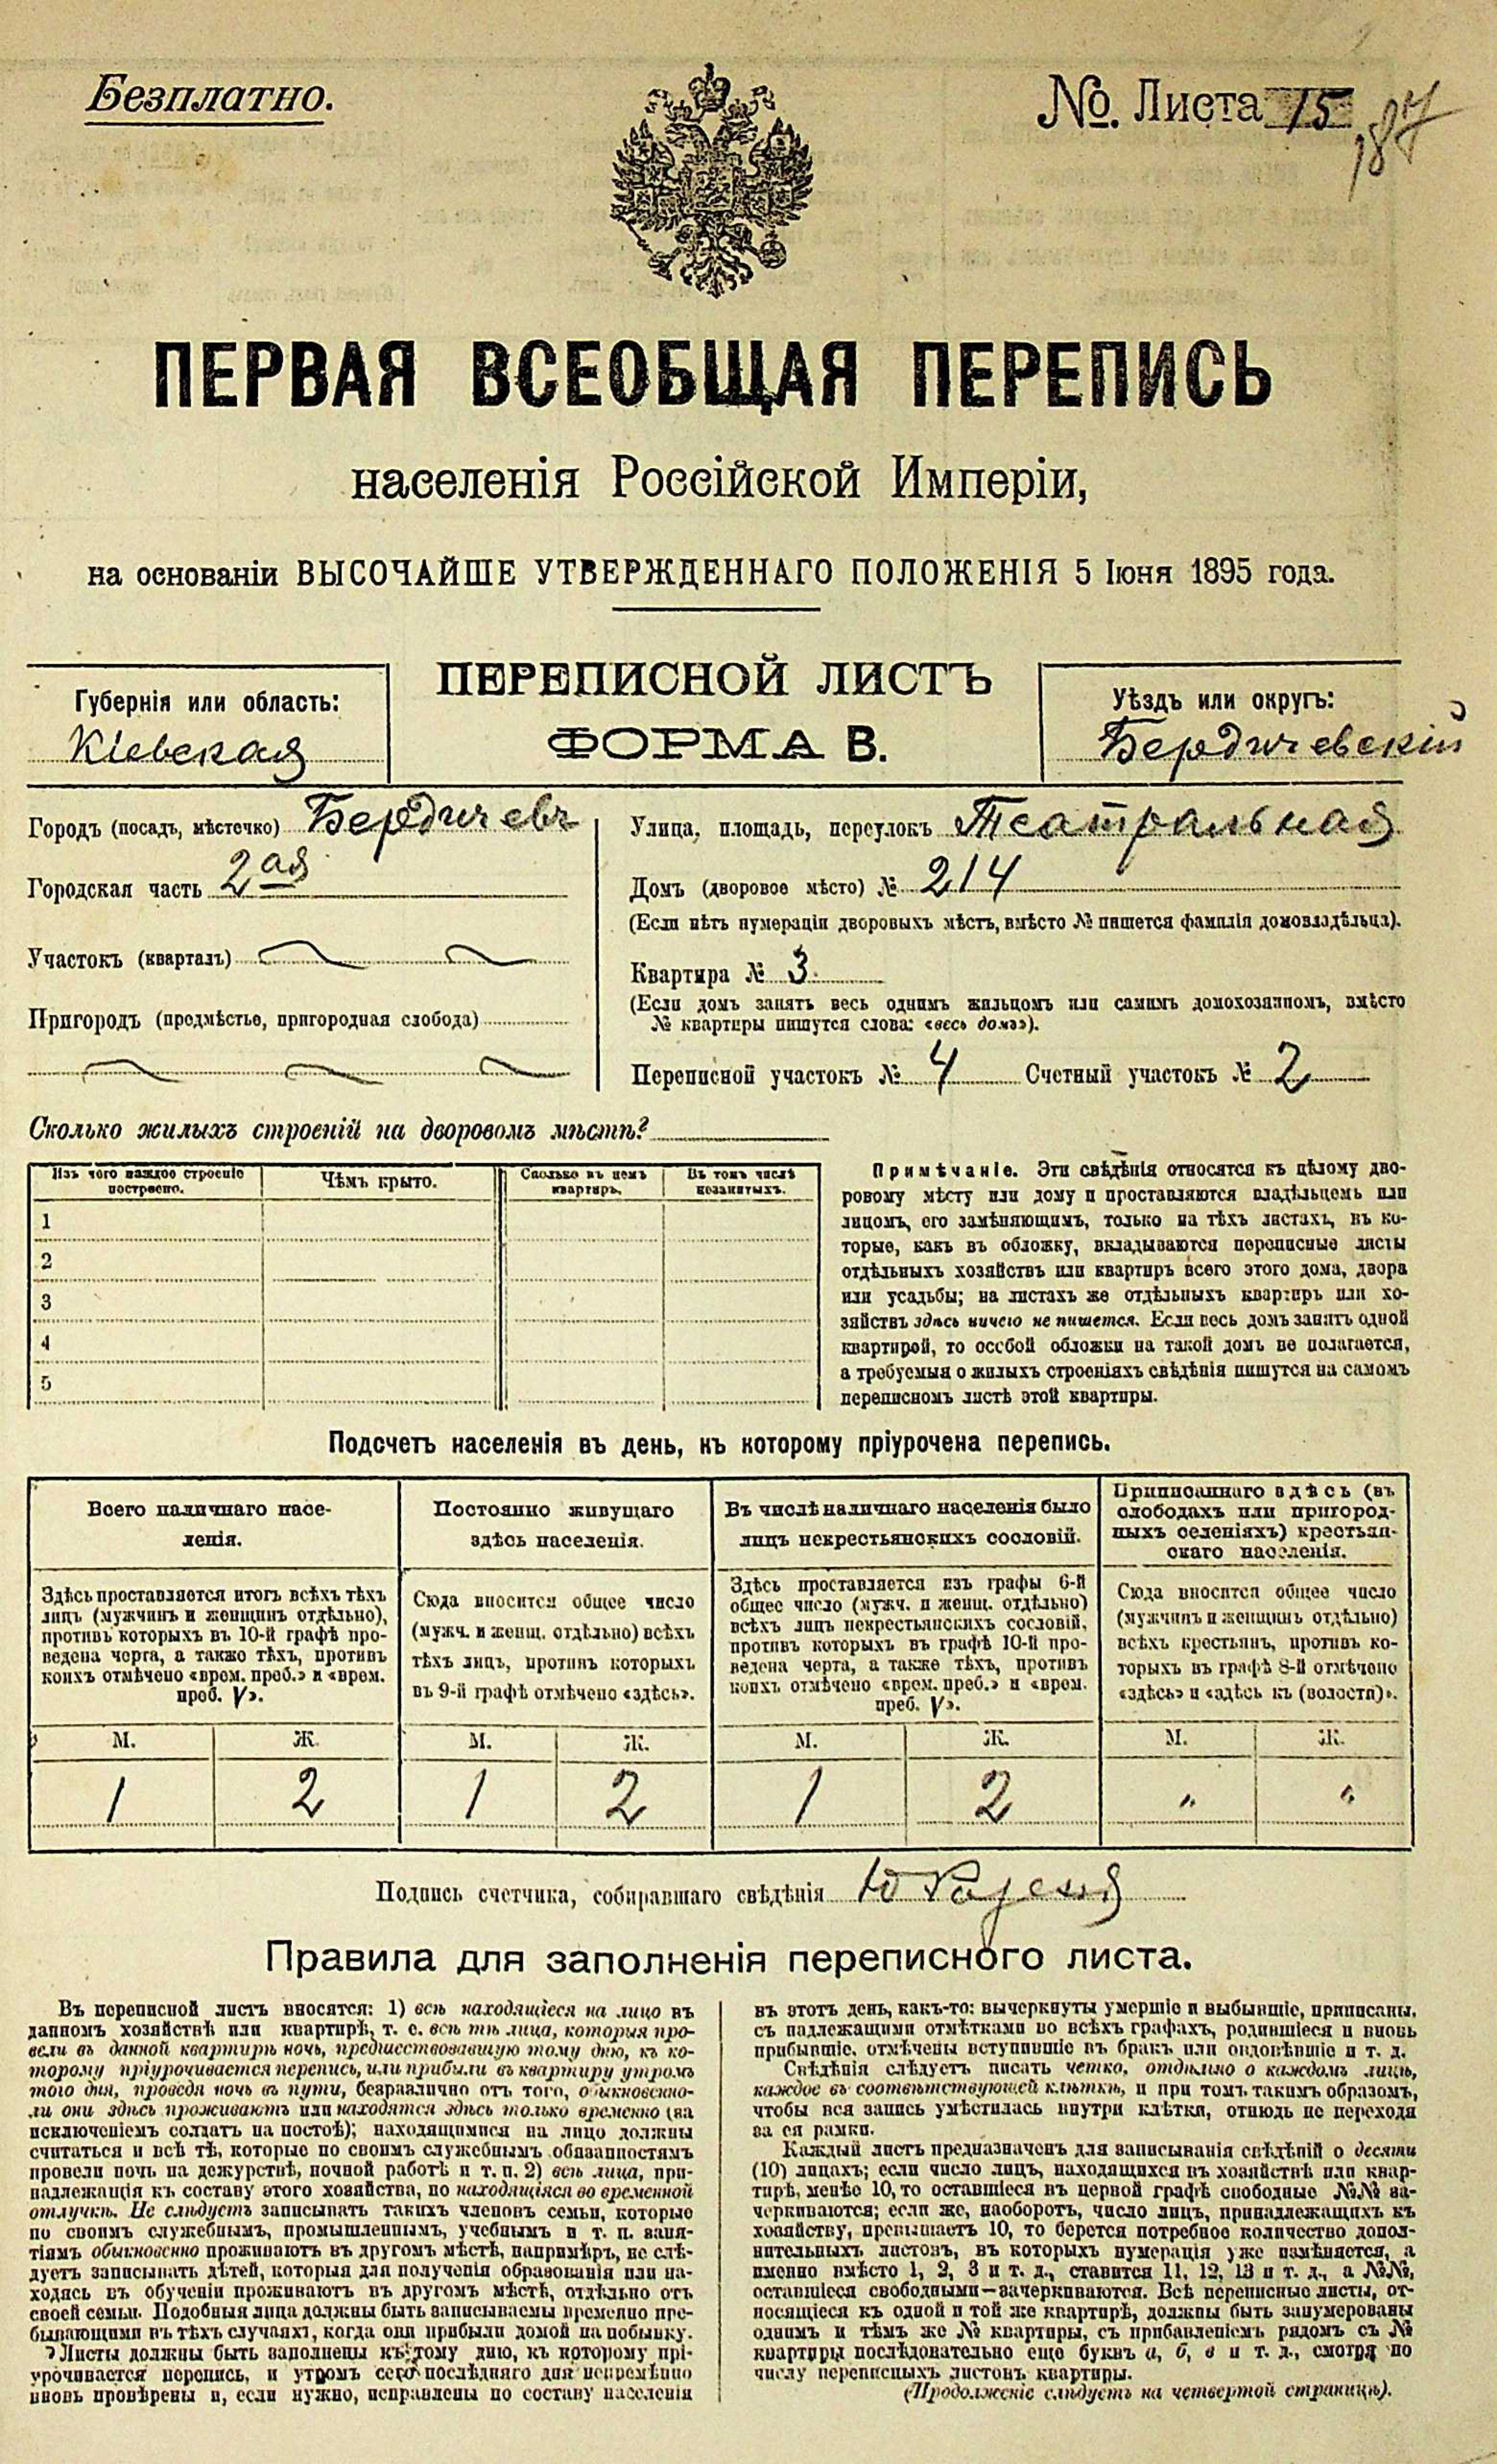 Безплатно.
№. Листа 15
187
ПЕРВАЯ ВСЕОБЩАЯ ПЕРЕПИСЬ
населенія Россійской Имперіи,
на основаніи ВЫСОЧАЙШЕ УТВЕРЖДЕННАГО ПОЛОЖЕНІЯ 5 Іюня 1895 года.
Губернія или область:
Кіевская
ПЕРЕПИСНОЙ ЛИСТЪ
ФОРМА В.
Уѣздъ или округъ:
Бердичевскій
Городъ (посадъ, мѣстечко) Бердичевъ
Городская часть 2ая
Участокъ (кварталъ)
Пригородъ (предмѣстье, пригородная слобода)
Улица, площадь, переулокъ Театральная
Домъ (дворовое мѣсто) № 214
(Если нѣтъ нумераціи дворовыхъ мѣстъ, вмѣсто № пишется фамилія домовладѣльца).
Квартира № 3.
(Если домъ занятъ весь однимъ жильцомъ или самимъ домохозяиномъ, вмѣсто
№ квартиры пишутся слова: «весь домъ»).
Переписной участокъ № 4 Счетный участокъ № 2
Сколько жилыхъ строеній на дворовомъ мѣстѣ?
Изъ чего каждое строеніе
построено.
Чѣмъ крыто.
Сколько въ немъ
квартиръ.
Въ томъ числѣ
незанятыхъ.
1
2
3
4
5
Примѣчаніе. Эти свѣдѣнія относятся къ цѣлому дво-
ровому мѣсту или дому и проставляются владѣльцемъ или
лицомъ, его замѣняющимъ, только на тѣхъ листахъ, въ ко-
торые, какъ въ обложку, вкладываются переписные листы
отдѣльныхъ хозяйствъ или квартиръ всего этого дома, двора
или усадьбы; на листахъ же отдѣльныхъ квартиръ или хо-
зяйствъ здѣсь ничего не пишется. Если весь домъ занятъ одной
квартирой, то особой обложки на такой домъ не полагается,
а требуемыя о жилыхъ строеніяхъ свѣдѣнія пишутся на самомъ
переписномъ листѣ этой квартиры.
Подсчетъ населенія въ день, къ которому пріурочена перепись.
Всего наличнаго насе-
ленія.
Здѣсь проставляется итогъ всѣхъ тѣхъ
лицъ (мужчинъ и женщинъ отдѣльно),
противъ которыхъ въ 10-й графѣ про-
ведена черта, а также тѣхъ, противъ
коихъ отмѣчено «врем. преб.» и «врем.
преб. V».
Постоянно живущаго
здѣсь населенія.
Сюда вносится общее число
(мужч. и женщ. отдѣльно) всѣхъ
тѣхъ лицъ, противъ которыхъ
въ 9-й графѣ отмѣчено «здѣсь».
Въ числѣ наличнаго населенія было
лицъ некрестьянскихъ сословій.
Здѣсь проставляется изъ графы 6-й
общее число (мужч. и женщ. отдѣльно)
всѣхъ лицъ некрестьянскихъ сословій,
противъ которыхъ въ графѣ 10-й про-
ведена черта, а также тѣхъ, противъ
коихъ отмѣчено «врем. преб.» и «врем.
преб. V».
Приписаннаго здѣсь (въ
слободахъ или пригород-
ныхъ селеніяхъ) крестьян-
скаго населенія.
Сюда вносится общее число
(мужчинъ и женщинъ отдѣльно)
всѣхъ крестьянъ, противъ ко-
торыхъ въ графѣ 8-й отмѣчено
«здѣсь» и «здѣсь къ (волости)».
М. Ж. М. Ж. М. Ж. М. Ж.
1 2 1 2 1 2 " "
Подпись счетчика, собиравшаго свѣдѣнія
Правила для заполненія переписного листа.
Въ переписной листъ вносятся: 1) всѣ находящіеся на лицо въ
данномъ хозяйствѣ или квартирѣ, т. е. всѣ тѣ лица, которыя про-
вели въ данной квартирѣ ночь, предшествовавшую тому дню, къ ко-
торому пріурочивается перепись, или прибыли въ квартиру утромъ
того дня, проведя ночь въ пути, безразлично отъ того, обыкновенно-
ли они здѣсь проживаютъ или находятся здѣсь только временно (за
исключеніемъ солдатъ на постоѣ); находящимися на лицо должны
считаться и всѣ тѣ, которые по своимъ служебнымъ обязанностямъ
провели ночь на дежурствѣ, ночной работѣ и т. п. 2) всѣ лица, при-
надлежащія къ составу этого хозяйства, но находящіяся во временной
отлучкѣ. Не слѣдуетъ записывать такихъ членовъ семьи, которые
по своимъ служебнымъ, промышленнымъ, учебнымъ и т. п. заня-
тіямъ обыкновенно проживаютъ въ другомъ мѣстѣ, напримѣръ, не слѣ-
дуетъ записывать дѣтей, которыя для полученія образованія или на-
ходясь въ обученіи проживаютъ въ другомъ мѣстѣ, отдѣльно отъ
своей семьи. Подобныя лица должны быть записываемы временно пре-
бывающими въ тѣхъ случаяхъ, когда они прибыли домой на побывку.
Листы должны быть заполнены къ тому дню, къ которому прі-
урочивается перепись, и утромъ сего послѣдняго дня непремѣнно
вновь провѣрены и, если нужно, исправлены по составу населенія
въ этотъ день, какъ-то: вычеркнуты умершіе и выбывшіе, приписаны,
съ надлежащими отмѣтками во всѣхъ графахъ, родившіеся и вновь
прибывшіе, отмѣчены вступившіе въ бракъ или овдовѣвшіе и т. д.
Свѣдѣнія слѣдуетъ писать четко, отдѣльно о каждомъ лицѣ,
каждое въ соотвѣтствующей клѣткѣ, и при томъ такимъ образомъ,
чтобы вся запись умѣстилась внутри клѣтки, отнюдь не переходя
за ея рамки.
Каждый листъ предназначенъ для записыванія свѣдѣній о десяти
(10) лицахъ; если число лицъ, находящихся въ хозяйствѣ или квар-
тирѣ, менѣе 10, то оставшіеся въ первой графѣ свободные №№ за-
черкиваются; если же, наоборотъ, число лицъ, принадлежащихъ къ
хозяйству, превышаетъ 10, то берется потребное количество допол-
нительныхъ листовъ, въ которыхъ нумерація уже измѣняется, а
именно вмѣсто 1, 2, 3 и т. д., ставится 11, 12, 13 и т. д., а №№,
оставшіеся свободными—зачеркиваются. Всѣ переписные листы, от-
носящіеся къ одной и той же квартирѣ, должны быть занумерованы
однимъ и тѣмъ же № квартиры, съ прибавленіемъ рядомъ съ №
квартиры послѣдовательно еще буквъ а, б, в и т. д., смотря по
числу переписныхъ листовъ квартиры.
(Продолженіе слѣдуетъ на четвертой страницѣ).